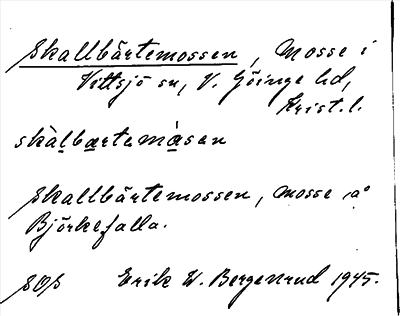 Skallbärtemossen, mosse i
Vittsjö sn, V. Göinge hd,
Krist. l.
skàlbærtemåsen
Skallbärtemossen, mosse å
Björkefalla.
SOS Erik W. Bergenrud 1945.